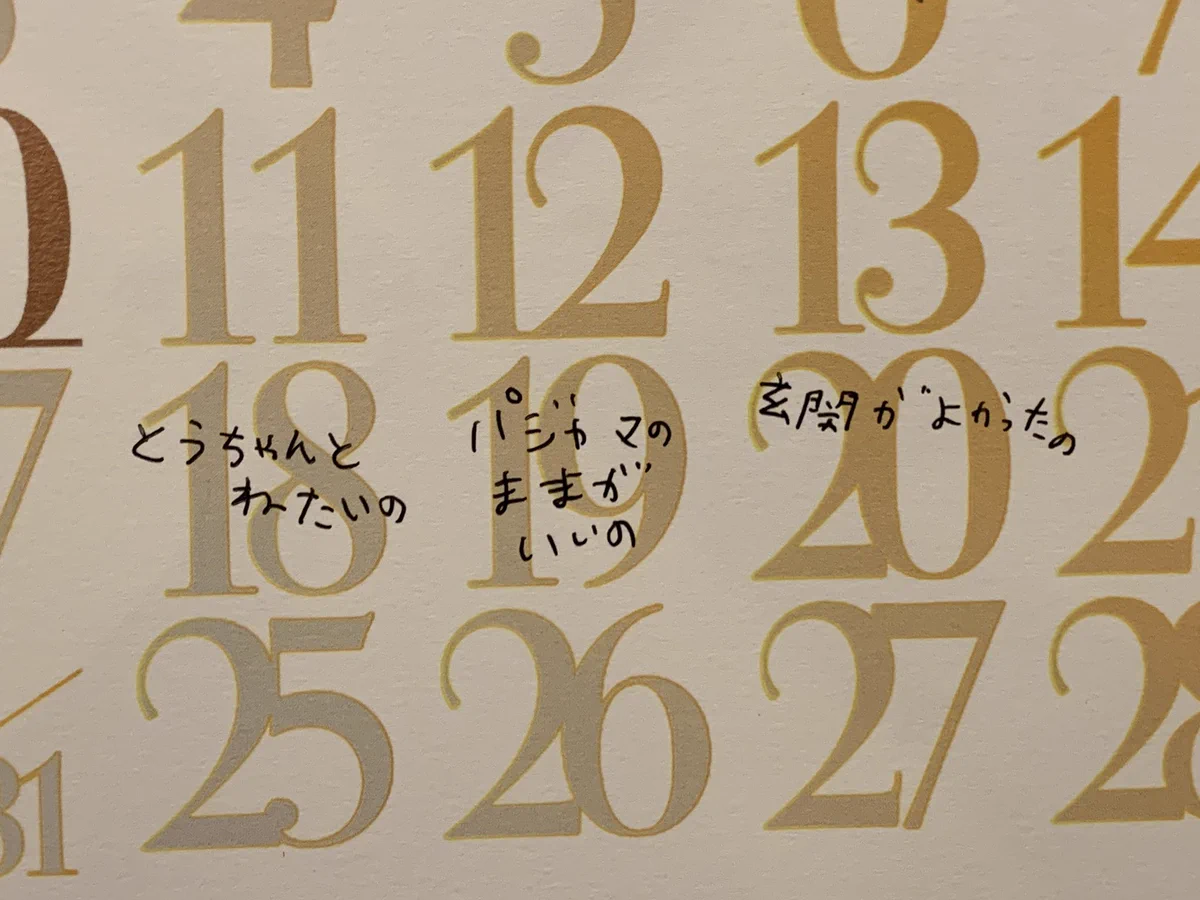 4 5 6 7
11 12 13 14
18 19 20
とうちゃんと
ねたいの
パジャマの
ままが
いいの
玄関がよかったの
25 26 27 28
31